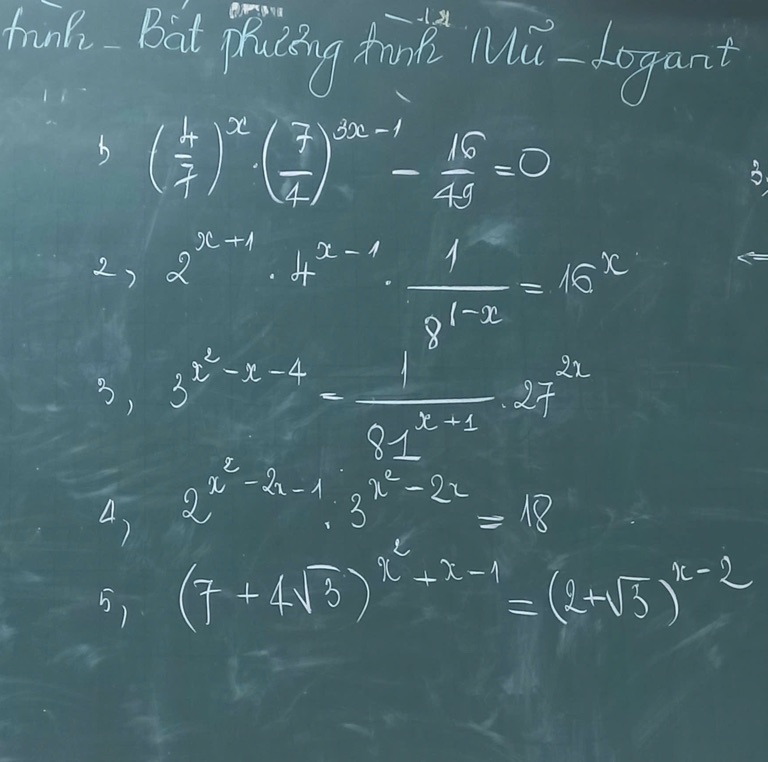 trình - Bất phương trình Mũ - Logarit
1, (4/7)^x . (7/4)^(3x-1) - 16/49 = 0
2, 2^(x+1) . 4^(x-1) . 1/8^(1-x) = 16^x
3, 3^(x²-x-4) = 1/81^(x+1) . 27^(2x)
4, 2^(x²-2x-1) . 3^(x²-2x) = 18
5, (7+4√3)^(x²+x-1) = (2+√3)^(x-2)
3,
⇐